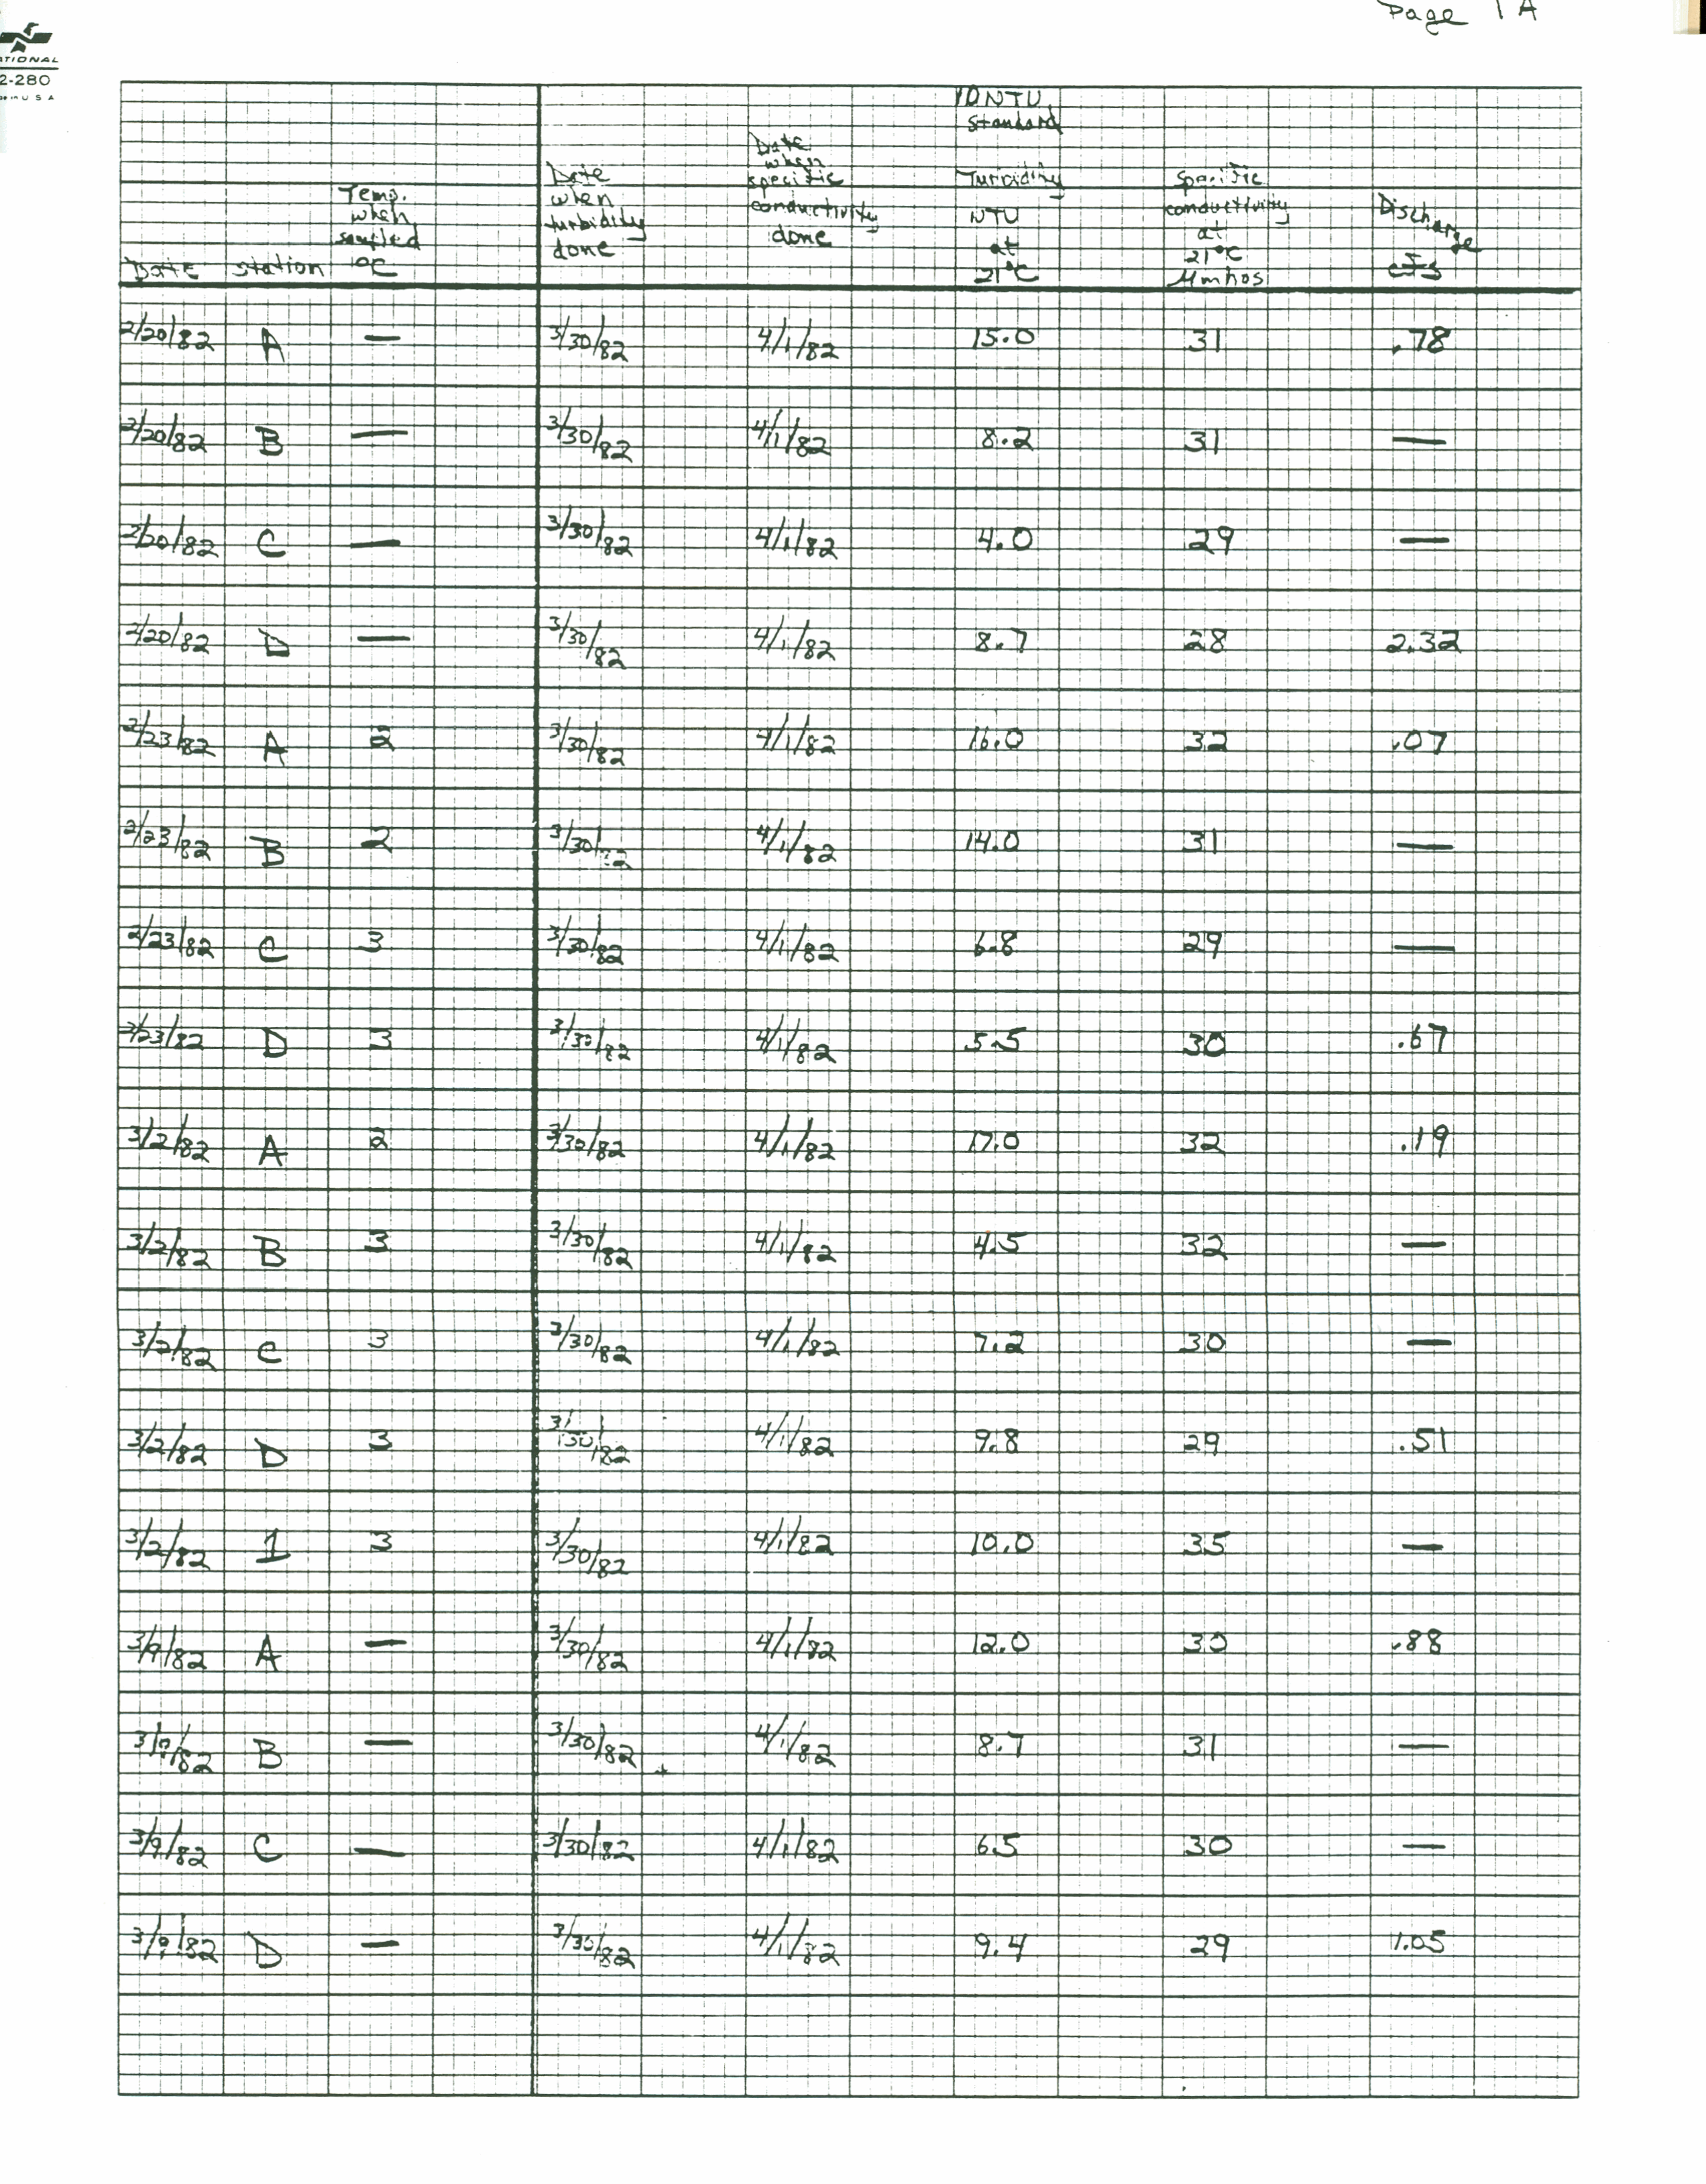 Page 1A
2-280
10 NTU
Standard
Date Station Temp. when sampled °C Date when turbidity done Date when specific conductivity done Turbidity NTU at 21°C Specific conductivity at 21°C µmhos Discharge cfs
2/20/82 A — 3/30/82 4/1/82 15.0 31 .78
2/20/82 B — 3/30/82 4/1/82 8.2 31 —
2/20/82 C — 3/30/82 4/1/82 4.0 29 —
2/20/82 D — 3/30/82 4/1/82 8.7 28 2.32
2/23/82 A 2 3/30/82 4/1/82 16.0 32 .07
2/23/82 B 2 3/30/82 4/1/82 14.0 31 —
2/23/82 C 3 3/30/82 4/1/82 6.8 29 —
2/23/82 D 3 3/30/82 4/1/82 5.5 30 .67
3/2/82 A 2 3/30/82 4/1/82 17.0 32 .19
3/2/82 B 3 3/30/82 4/1/82 4.5 32 —
3/2/82 C 3 3/30/82 4/1/82 7.2 30 —
3/2/82 D 3 3/30/82 4/1/82 9.8 29 .51
3/2/82 1 3 3/30/82 4/1/82 10.0 35 —
3/9/82 A — 3/30/82 4/1/82 12.0 30 .88
3/9/82 B — 3/30/82 4/1/82 8.7 31 —
3/9/82 C — 3/30/82 4/1/82 6.5 30 —
3/9/82 D — 3/30/82 4/1/82 9.4 29 1.05